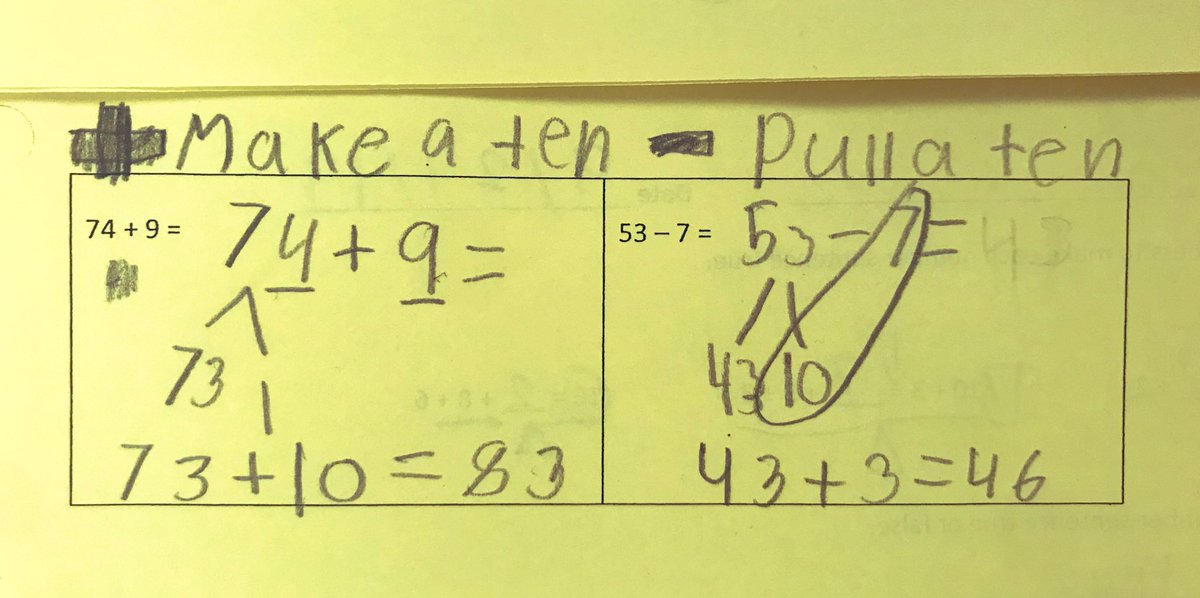 + Make a ten - Pull a ten
74 + 9 = 74 + 9 =
73 1
73 + 10 = 83
53 – 7 = 53 - 7 =
43 10
43 + 3 = 46